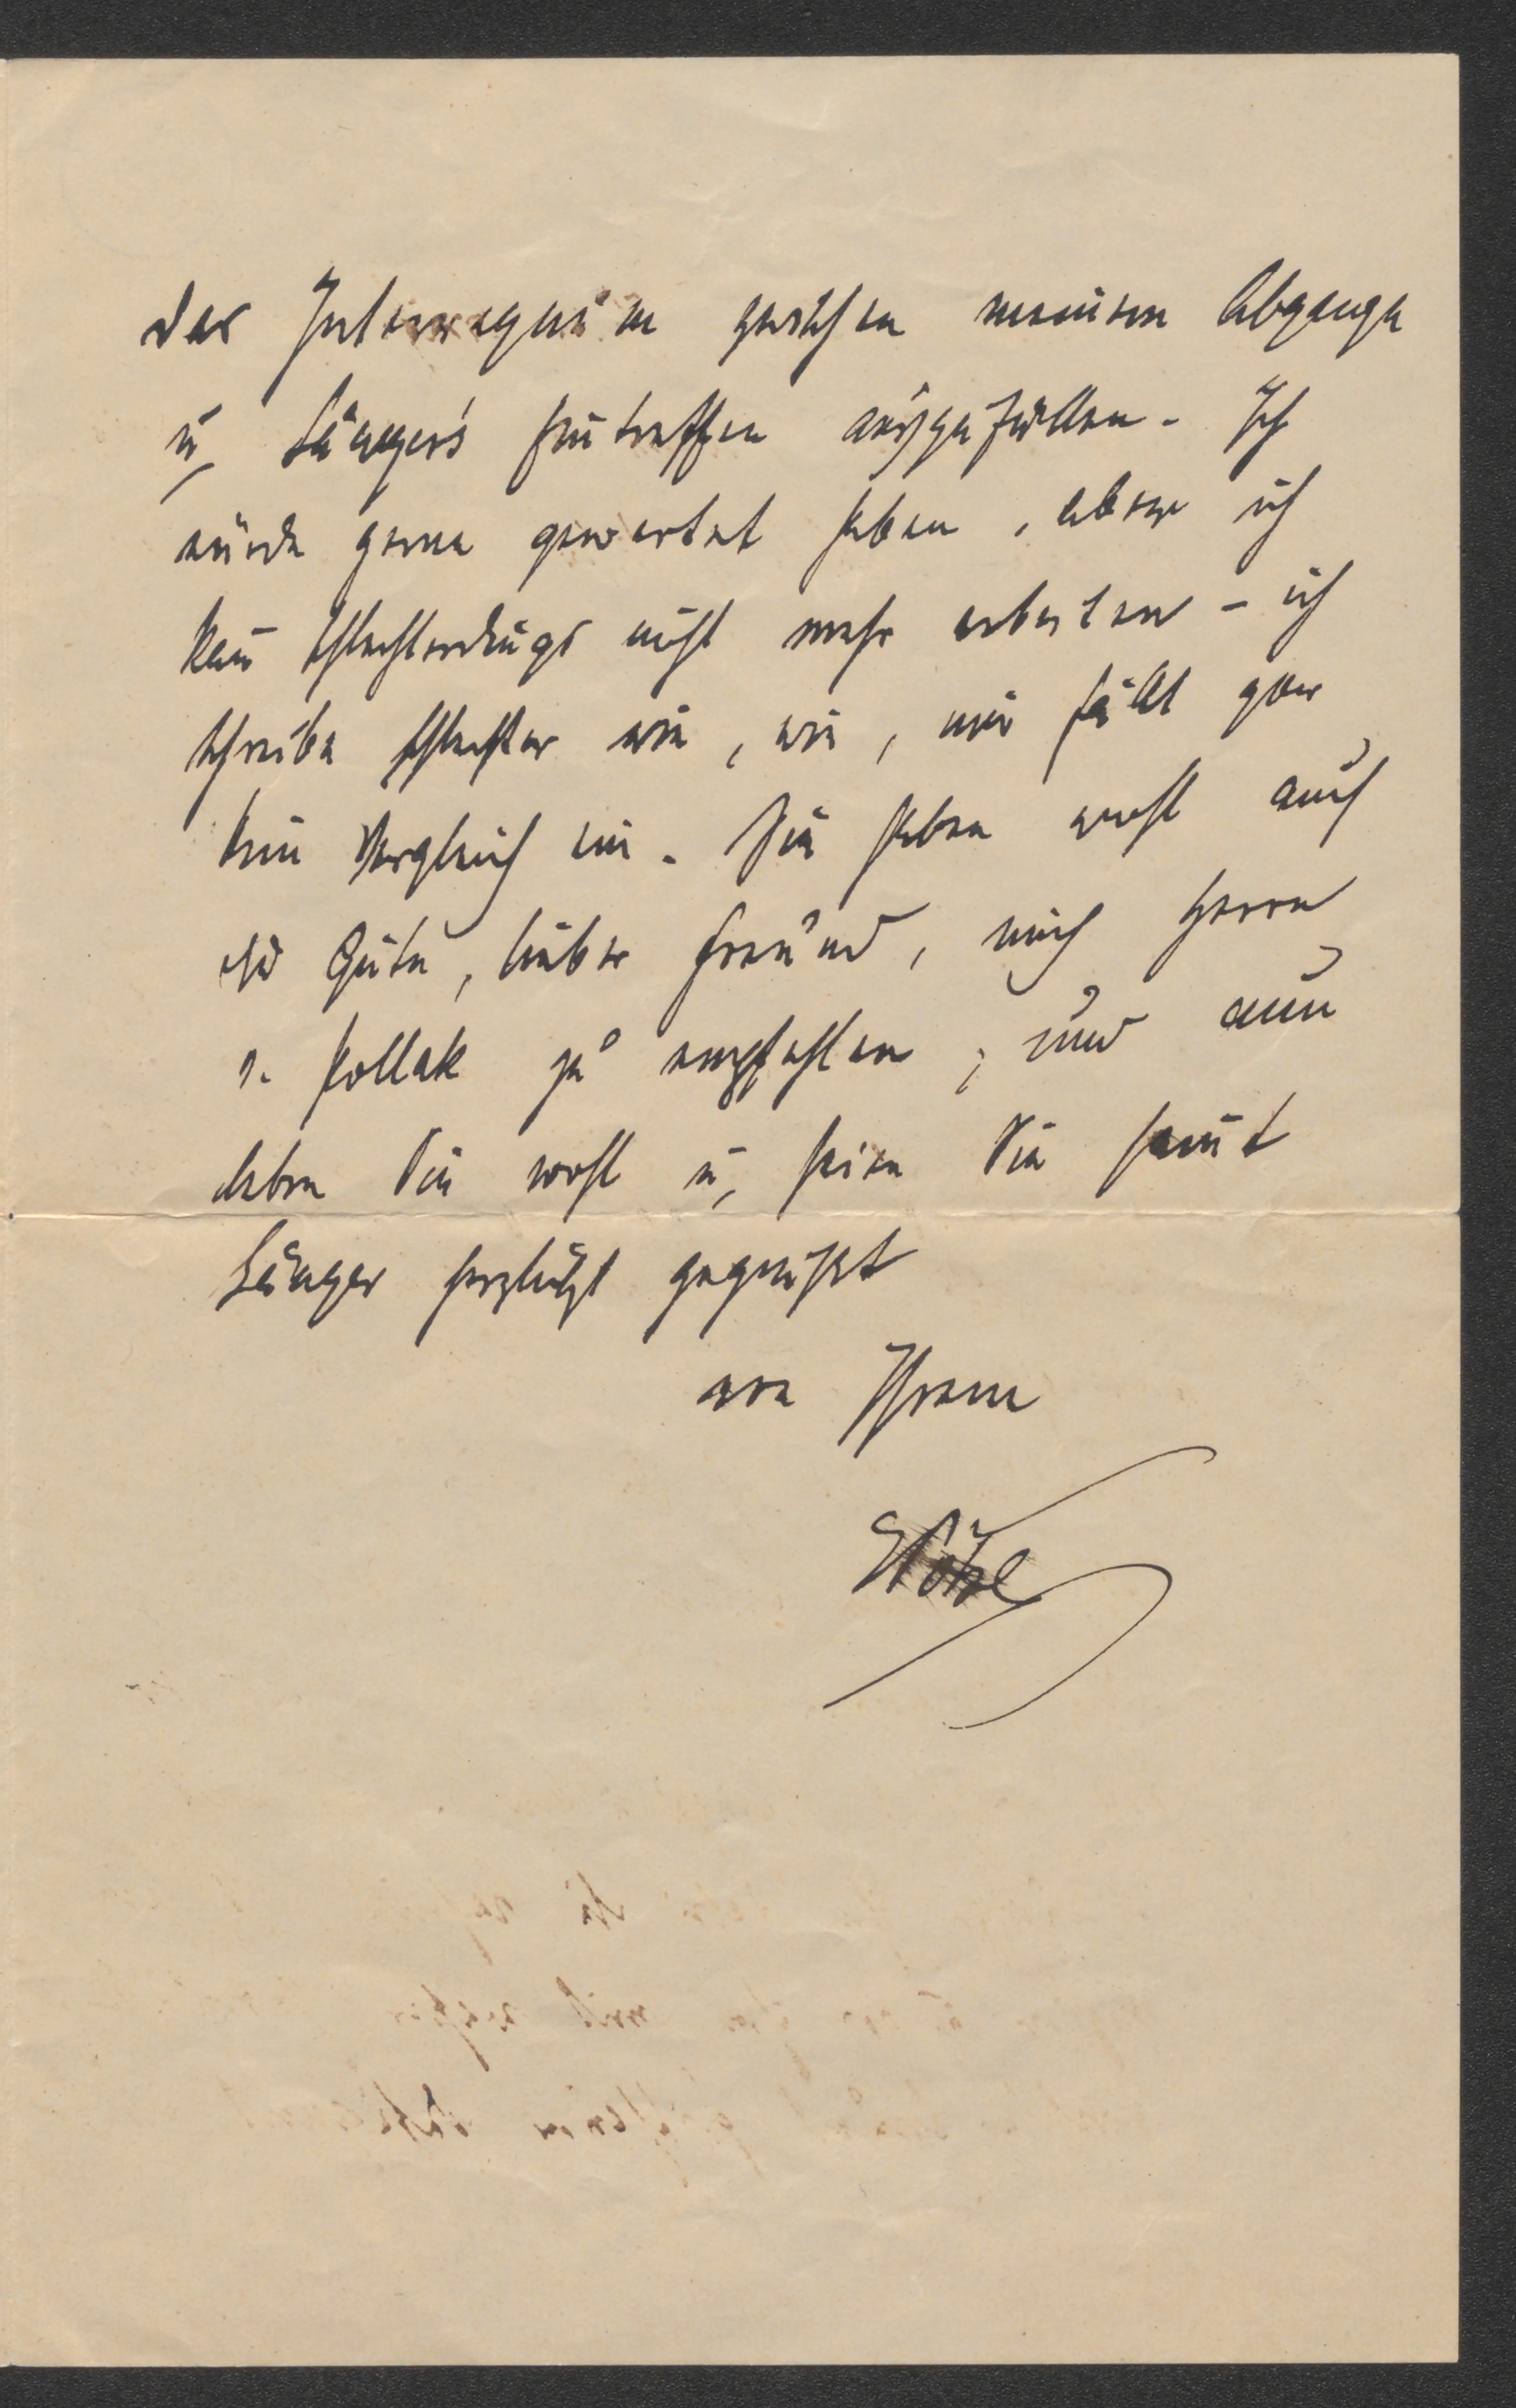 das Interregnum zwischen meinem Abgange
u. Sänger's Eintreffen auszufüllen. Ich
würde gerne gewartet haben, aber ich
kann schlechterdings nicht mehr arbeiten – ich
schreibe schlechter wie, wie, mir fällt gar
kein Vergleich ein. Sie haben wohl auch
die Güte, lieber Freund, mich Herrn
v. Pollak zu empfehlen, und nun
leben Sie wohl u. seien Sie samt
Sänger herzlichst gegrüßt
von Ihrem